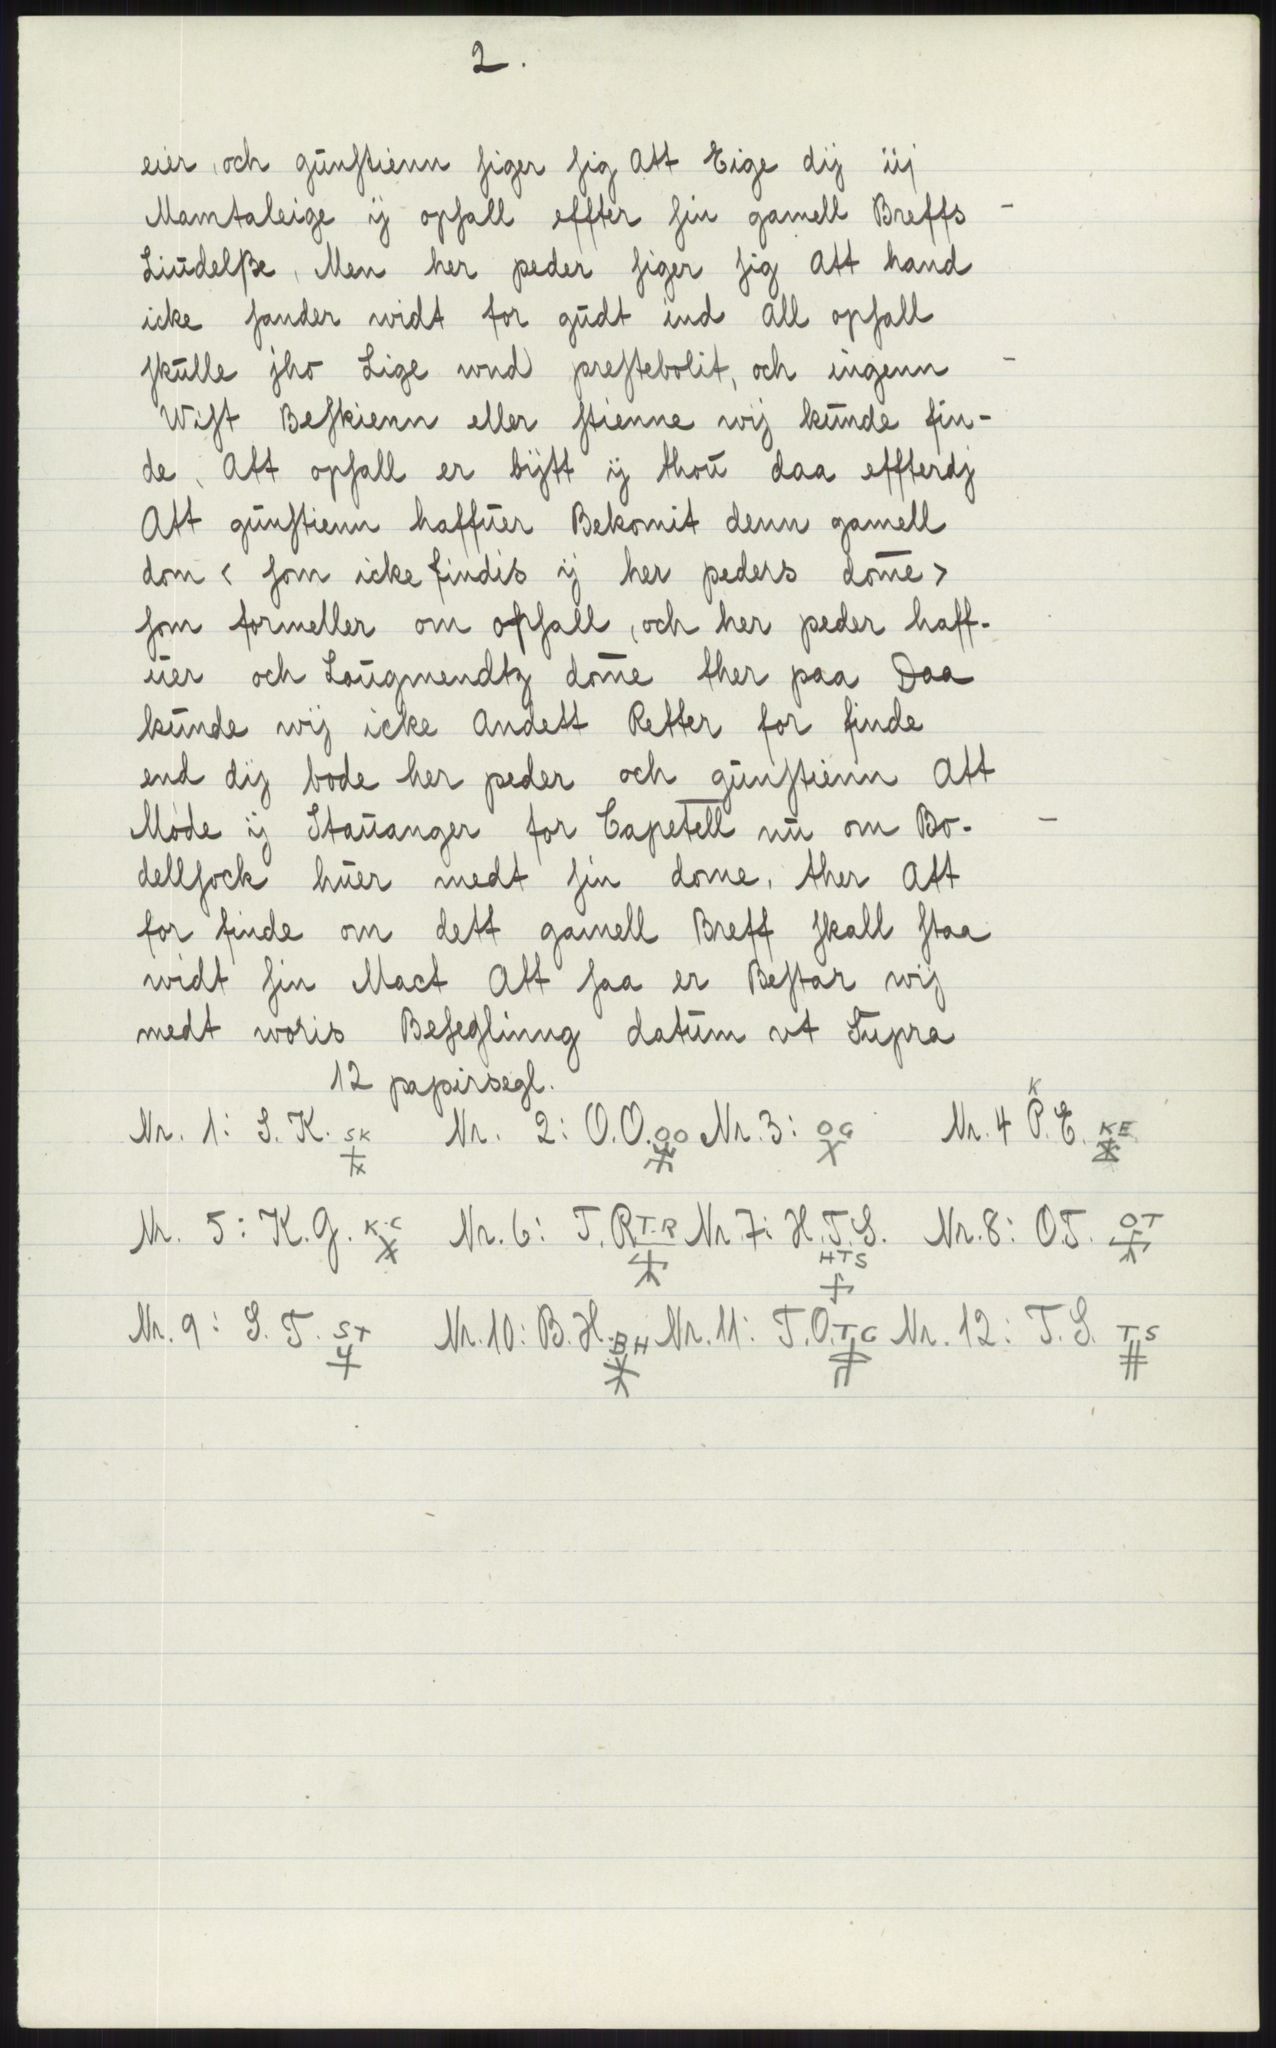 2.
eier, och gunstienn siger sig Att Eige dij iij
Mamtaleige ij opsall effter sin gamell Breffs -
Liudelße, Men her peder siger sig Att hand
icke sander widt for gudt ind All opsall
skulle jho Lige wnd prestebolit, och ingenn -
Wist Beskienn eller stienne wij kunde fin-
de, Att opsall er bijtt ij thou daa effterdj
Att gunstienn haffuer Bekomit denn gamell
dom < som icke findis ij her peders dome >
som formeller om opsall, och her peder haff-
uer och Lougmendtz dome ther paa Daa
kunde wij icke Andett Retter for finde
end dij bode her peder och gunstienn Att
Møde ij Stauanger for Capetell nu om Bo- -
dellsock huer medt sin dome, ther Att
for finde om dett gamell Breff skall staa
widt sin Mact Att saa er Bestar wij
medt woris Beseglinng datum vt Supra
12 papirsegl.
Nr. 1: S. K. SK Nr. 2: O.O. OO Nr. 3: OG Nr. 4 K P. E. KE
Nr. 5: K. G. K.C Nr. 6: T. R T.R Nr. 7: H. T. S. HTS Nr. 8: O.T. OT
Nr. 9: S. T. ST Nr. 10: B. H. BH Nr. 11: T. O. TG Nr. 12: T. S. TS